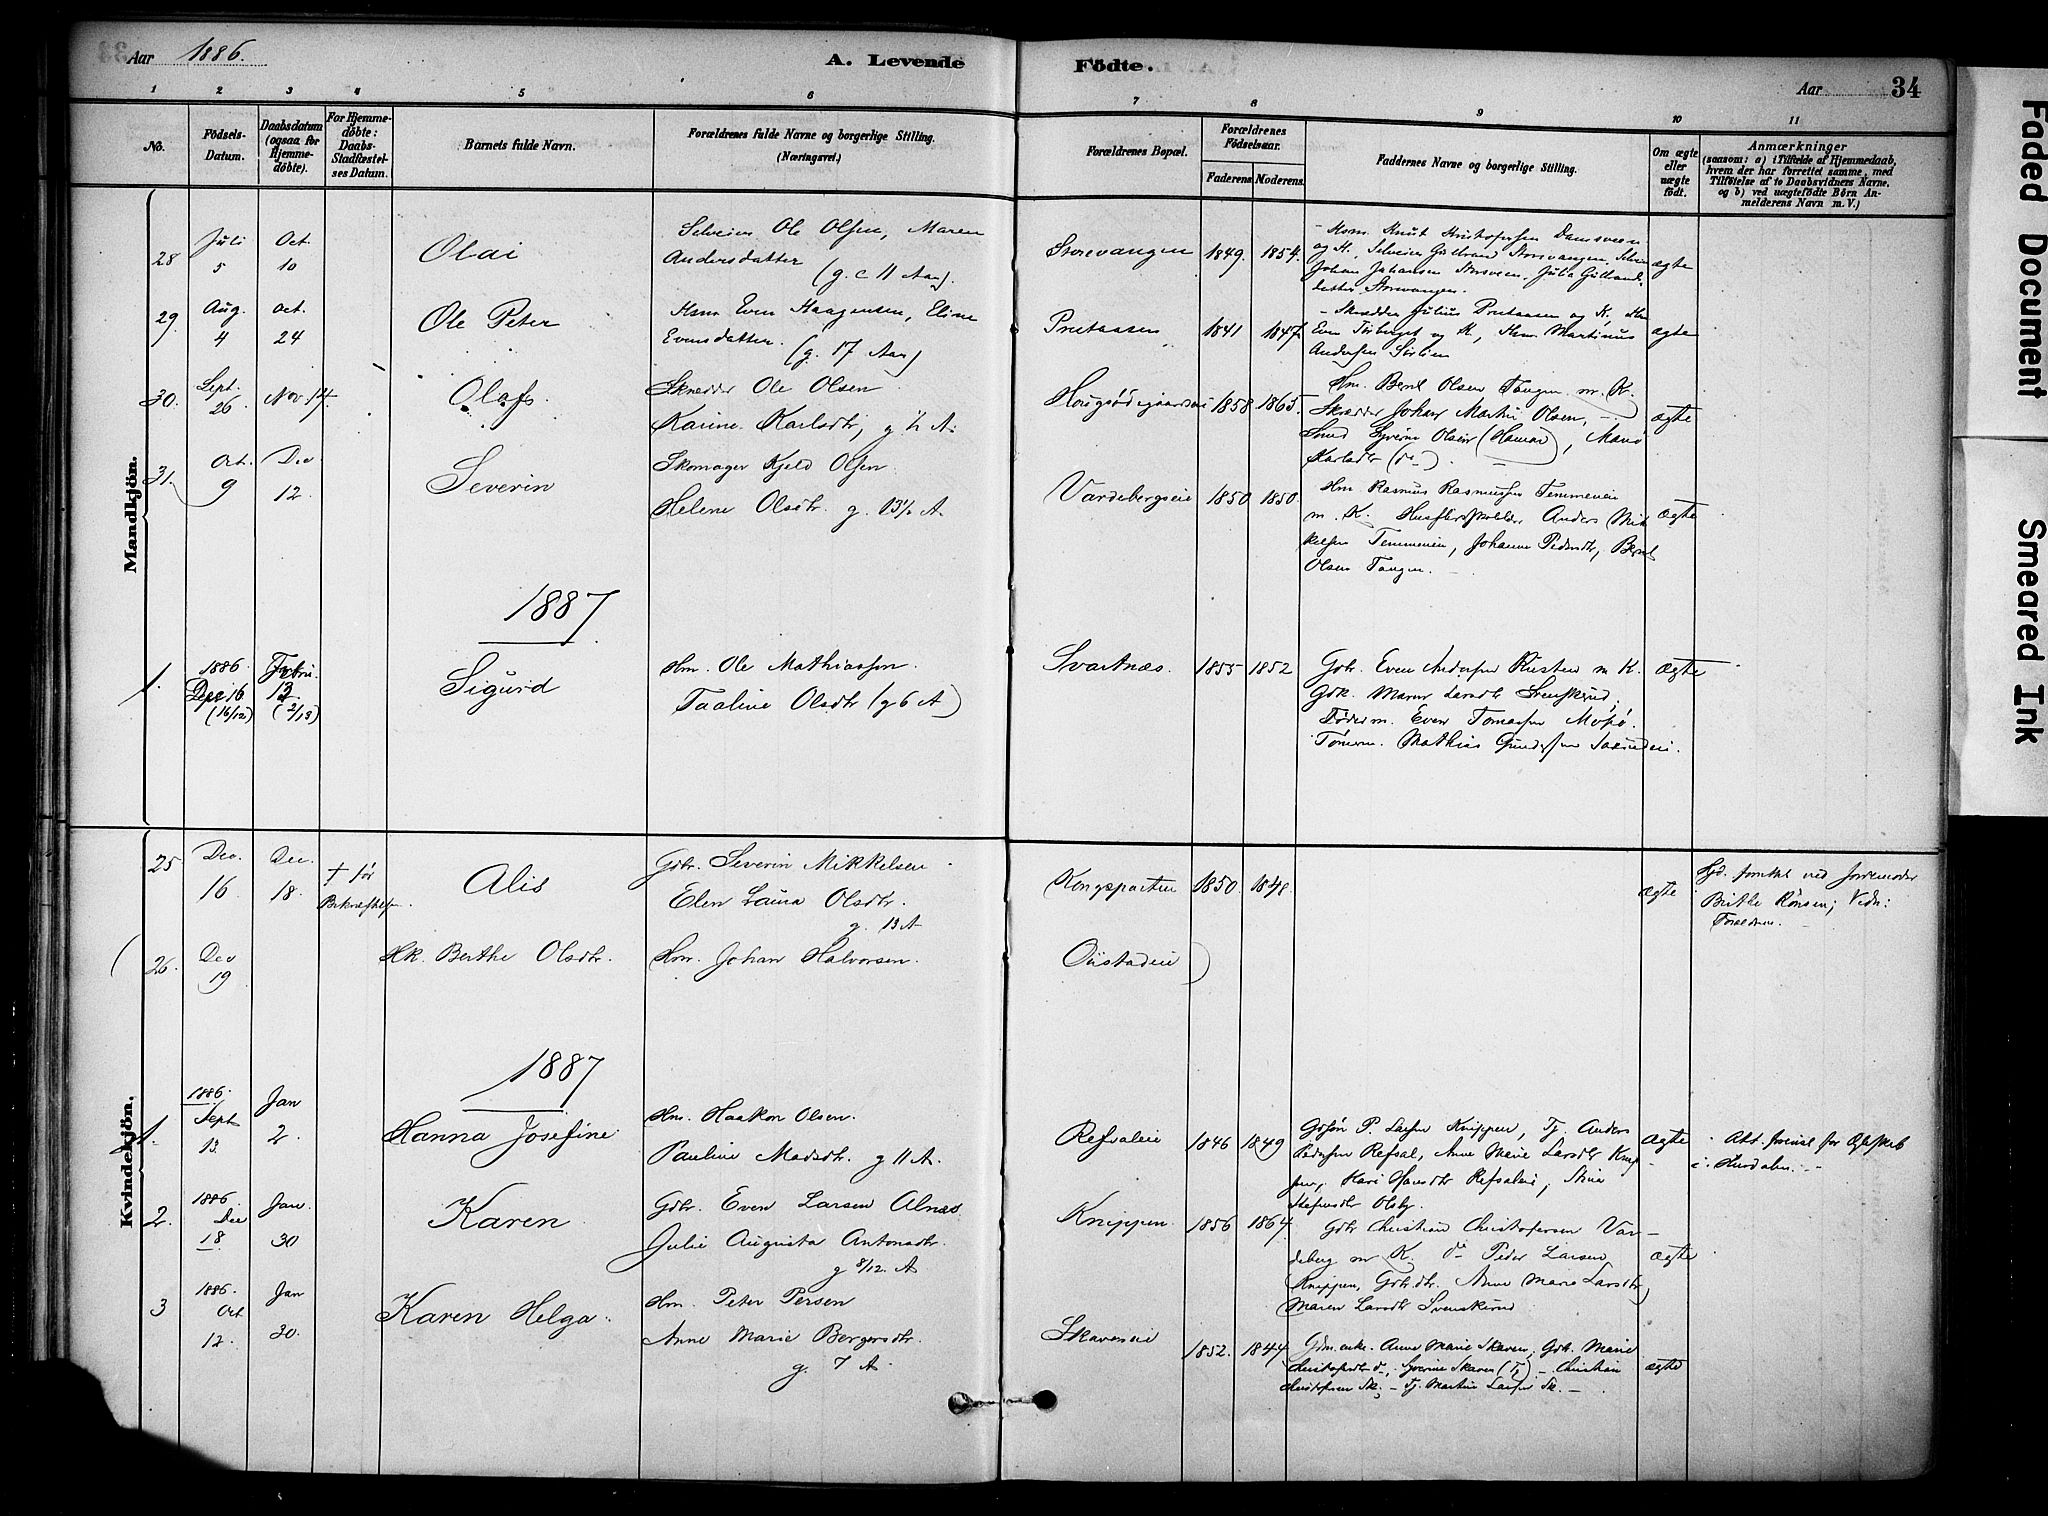 Aar 1886. A. Levende Födte. Aar 34
1 2 3 4 5 6 7 8 9 10 11
No. Födsels-Datum. Daabsdatum (ogsaa for Hjemmedöbte). For Hjemmedöbte: Daabs-Stadfæstelses Datum. Barnets fulde Navn. Forældrenes fulde Navne og borgerlige Stilling. (Næringsvei.) Forældrenes Bopæl. Forældrenes Födselsaar. Faderens Moderens. Faddernes Navne og borgerlige Stilling. Om ægte eller uægte födt. Anmærkninger (saasom: a) i Tilfælde af Hjemmedaab, hvem der har forrettet samme, med Tilföielse af to Daabsvidners Navne, og b) ved uægtefödte Börn Anmelderens Navn m. V.)
Mandkjön.
28 Juli 5 Oct. 10 Olai
Selveier Ole Olsen, Maren
Andersdatter (g. c 11 Aar).
Storevangen 1849. 1854.
Hsm. Knut Kristofersen
og K., Selveier Gulbrand Storvangen,
Johan Johansen Storsveen, Julia
Storevangen.
ægte
29 Aug. 4 oct. 24 Ole Peter
Hsm Even Haagensen, Eline
Evensdatter. (g. 17 Aar)
Prestaasen 1841 1847
Skrædder Julius Prestaasen og K,
Even og K, Hsm. Martinus
Andersen
ægte
30. Sept. 26 Nov 14. Olaf
Skrædder Ole Olsen
Karine Karlsdtr, g ½ A.
1858 1865.
Hm. Bernt Olsen Tangen m. K.
Skrædder Johan Martin Olsen,
Smed Olsen (Hamar),
Karlsdtr
ægte
31. Oct. 9 Dec 12. Severin
Skomager Kjeld Olsen
Helene Olsdtr. g. 13½ A
Vardebergseie 1850 1850.
Hm Rasmus Rasmussen
m. K. Anders Mik
kelsen Johanne Pedersdtr, Bernt
Olsen Tangen.
ægte
1887
1. 1886 Dec 16 (16/12) Febr. 13 (2/13) Sigurd
Hm. Ole Mathiassen.
Taaline Olsdtr (g 6 A)
Svartnæs. 1855 1852
Gbr. Even Andersen Rusten m K.
Gdk. Maren Larsdtr Svenskerud,
Føderm. Even Tomassen
Tømm. Mathias Gundersen
Ægte
Kvindekjön.
25 Dec. 16 Dec. 18. † før Bekræftelsen. Alis
Gbr. Severin Mikkelsen
Elen Laura Olsdtr.
g. 13 A
Kongsparten 1850. 1848.
ægte
Hjd. forrettet ved Jordemoder
Birthe Rønsen; Vidn:
Forældrene.
26. Dec 19 Hk. Berthe Olsdtr. Hm. Johan Halvorsen.
1887
1. 1886. Sept 13. Jan 2. Hanna Josefine
Hm. Haakon Olsen.
Pauline Madsdtr. g 11 A.
Refsaleie 1846 1849
Gdsøn P. Larsen Knippen, Tj. Anders
Pedersen Refsal, Anne Marie Larsdtr Knip
pen, Kari Hansdtr Refsaleie, Stine
Olsby
ægte
i Hurdalen.
2. 1886 Dec 18 Jan. 30 Karen
Gdbr. Even Larsen Alnæs
Julie Augusta Antonsdtr.
g 8/12. A
Knippen. 1856 1864.
Gdbr Christian Christofersen Var-
deberg m K. do Peder Larsen
Knippen, Gdbrdtr. Anne Marie Larsdtr,
Maren Larsdtr Svenskerud
ægte
3 1886. Oct 12. Jan 30. Karen Helga.
Hm. Peter Persen
Anne Marie Bergersdtr.
g. 7 A.
Skaveseie 1852. 1844
Gdm. enke. Anne Marie Skaven, Gdt. Marie
Christofersdtr do, Syverine Skaven (Tj) - Christian
Christofersen Sk; - Tj. Martin Larsen Sk. -
ægte
Faded Document Smeared Ink